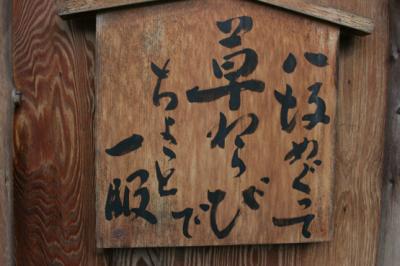 八坂めぐって
草わらびで
ちょこと
一服